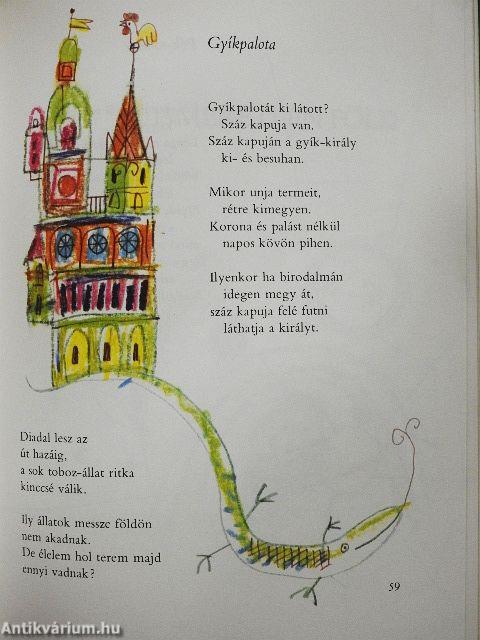 Gyíkpalota
Gyíkpalotát ki látott?
Száz kapuja van.
Száz kapuján a gyík-király
ki- és besuhan.
Mikor unja termeit,
rétre kimegyen.
Korona és palást nélkül
napos kövön pihen.
Ilyenkor ha birodalmán
idegen megy át,
száz kapuja felé futni
láthatja a királyt.
Diadal lesz az
út hazáig,
a sok toboz-állat ritka
kinccsé válik.
Ily állatok messze földön
nem akadnak.
De élelem hol terem majd
ennyi vadnak?
59
Antikvárium.hu